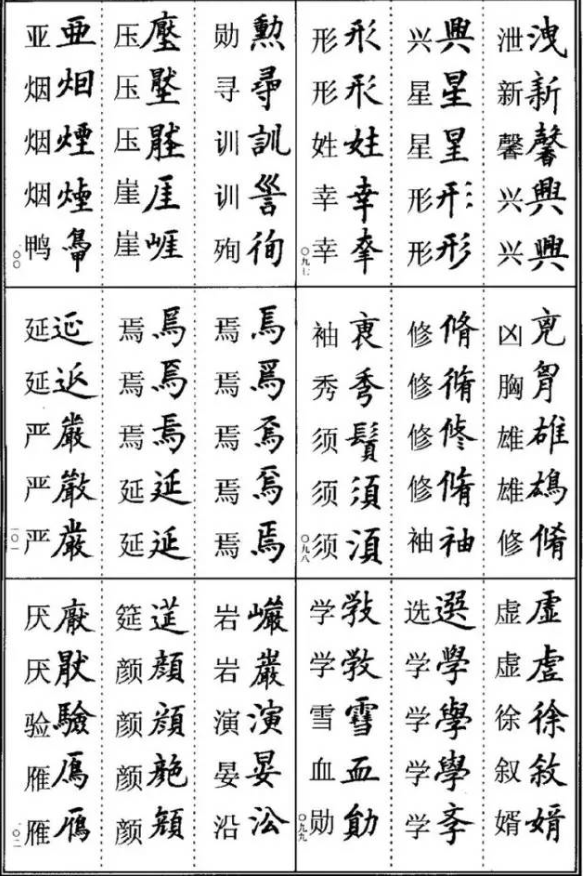 泄洩 新新 馨馨 兴興 兴興
兴興 星星 星星 形形 形形
形形 形形 姓姓 幸幸 幸
〇九七
凶兇 胸胷 雄雄 雄 修脩
修脩 修脩 修修 修脩 袖袖
袖 秀秀 须鬚 须須 须湏
〇九八
虚虚 虚虗 徐徐 叙敘 婿婿
选選 学學 学學 学學 学斈
学 学教 雪雪 血血 勋勛
〇九九
勋勳 寻尋 训訓 训 殉徇
压壓 压 压 崖崖 崖崕
亚亞 烟烟 烟煙 烟煙 鸭
一〇〇
焉焉 焉焉 焉焉 焉焉 焉焉
焉焉 焉焉 焉焉 延延 延延
延延 延 严嚴 严 严嚴
一〇一
岩巗 岩巖 演演 晏晏 沿㳂
筵莚 颜顔 颜顔 颜 颜
厌厭 厌猒 验驗 雁鴈 雁鴈
一〇二